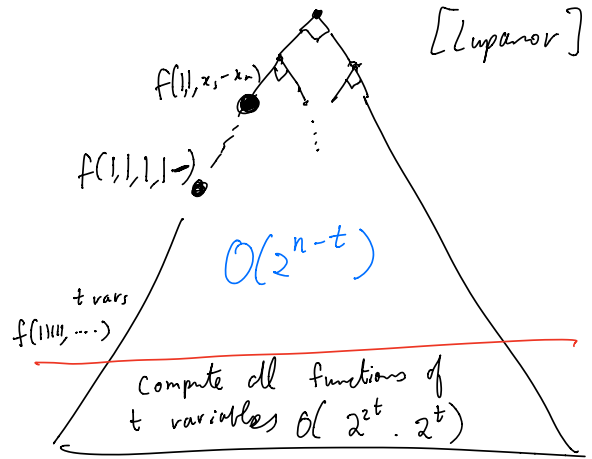 [Lupanov]
f(1,1,x₃-xₙ)
f(1,1,1,1-)
O(2^{n-t})
t vars
f(11111, ....)
Compute all functions of
t variables O(2^{2^t} · 2^t)